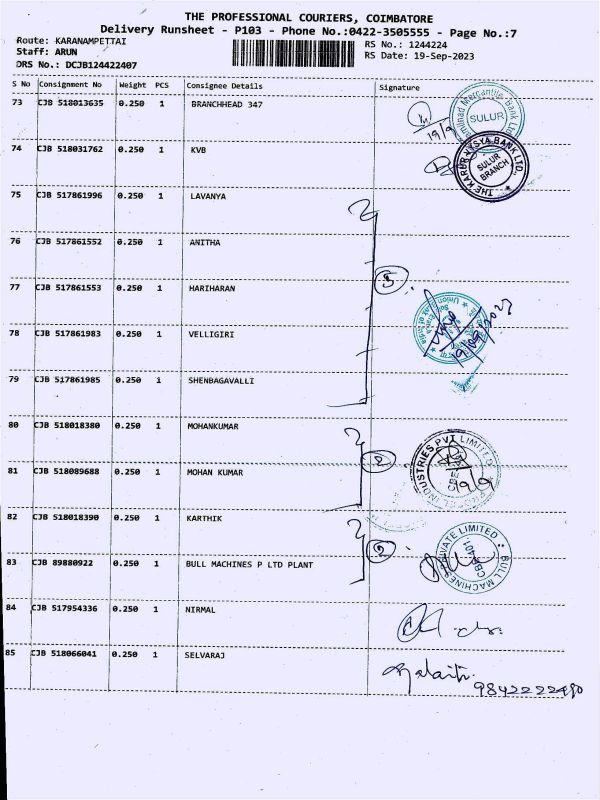 THE PROFESSIONAL COURIERS, COIMBATORE
Delivery Runsheet - P103 - Phone No.:0422-3505555 - Page No.:7
Route: KARANAMPETTAI RS No.: 1244224
Staff: ARUN RS Date: 19-Sep-2023
DRS No.: DCJB124422407
S No Consignment No Weight PCS Consignee Details Signature
73 CJB 518013635 0.250 1 BRANCHHEAD 347
Mercantile Bank Ltd
SULUR
19/9
74 CJB 518031762 0.250 1 KVB
THE KARUR VYSYA BANK LTD.,
SULUR
BRANCH
75 CJB 517861996 0.250 1 LAVANYA
76 CJB 517861552 0.250 1 ANITHA
5
77 CJB 517861553 0.250 1 HARIHARAN
Union
78 CJB 517861983 0.250 1 VELLIGIRI
79 CJB 517861985 0.250 1 SHENBAGAVALLI
80 CJB 518018380 0.250 1 MOHANKUMAR
INDUSTRIES PVT LIMITED
2
81 CJB 518089688 0.250 1 MOHAN KUMAR
19/9
82 CJB 518018390 0.250 1 KARTHIK
BULL MACHINES PRIVATE LIMITED
2
83 CJB 89880922 0.250 1 BULL MACHINES P LTD PLANT
84 CJB 517954336 0.250 1 NIRMAL
85 CJB 518066041 0.250 1 SELVARAJ